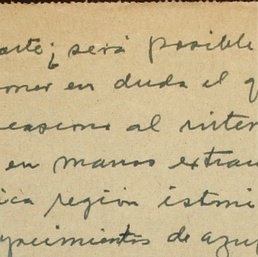 arte; será posible
oner en duda el q
ocasione al inter
en manos extran
ica región istmi
cimientos de azuf